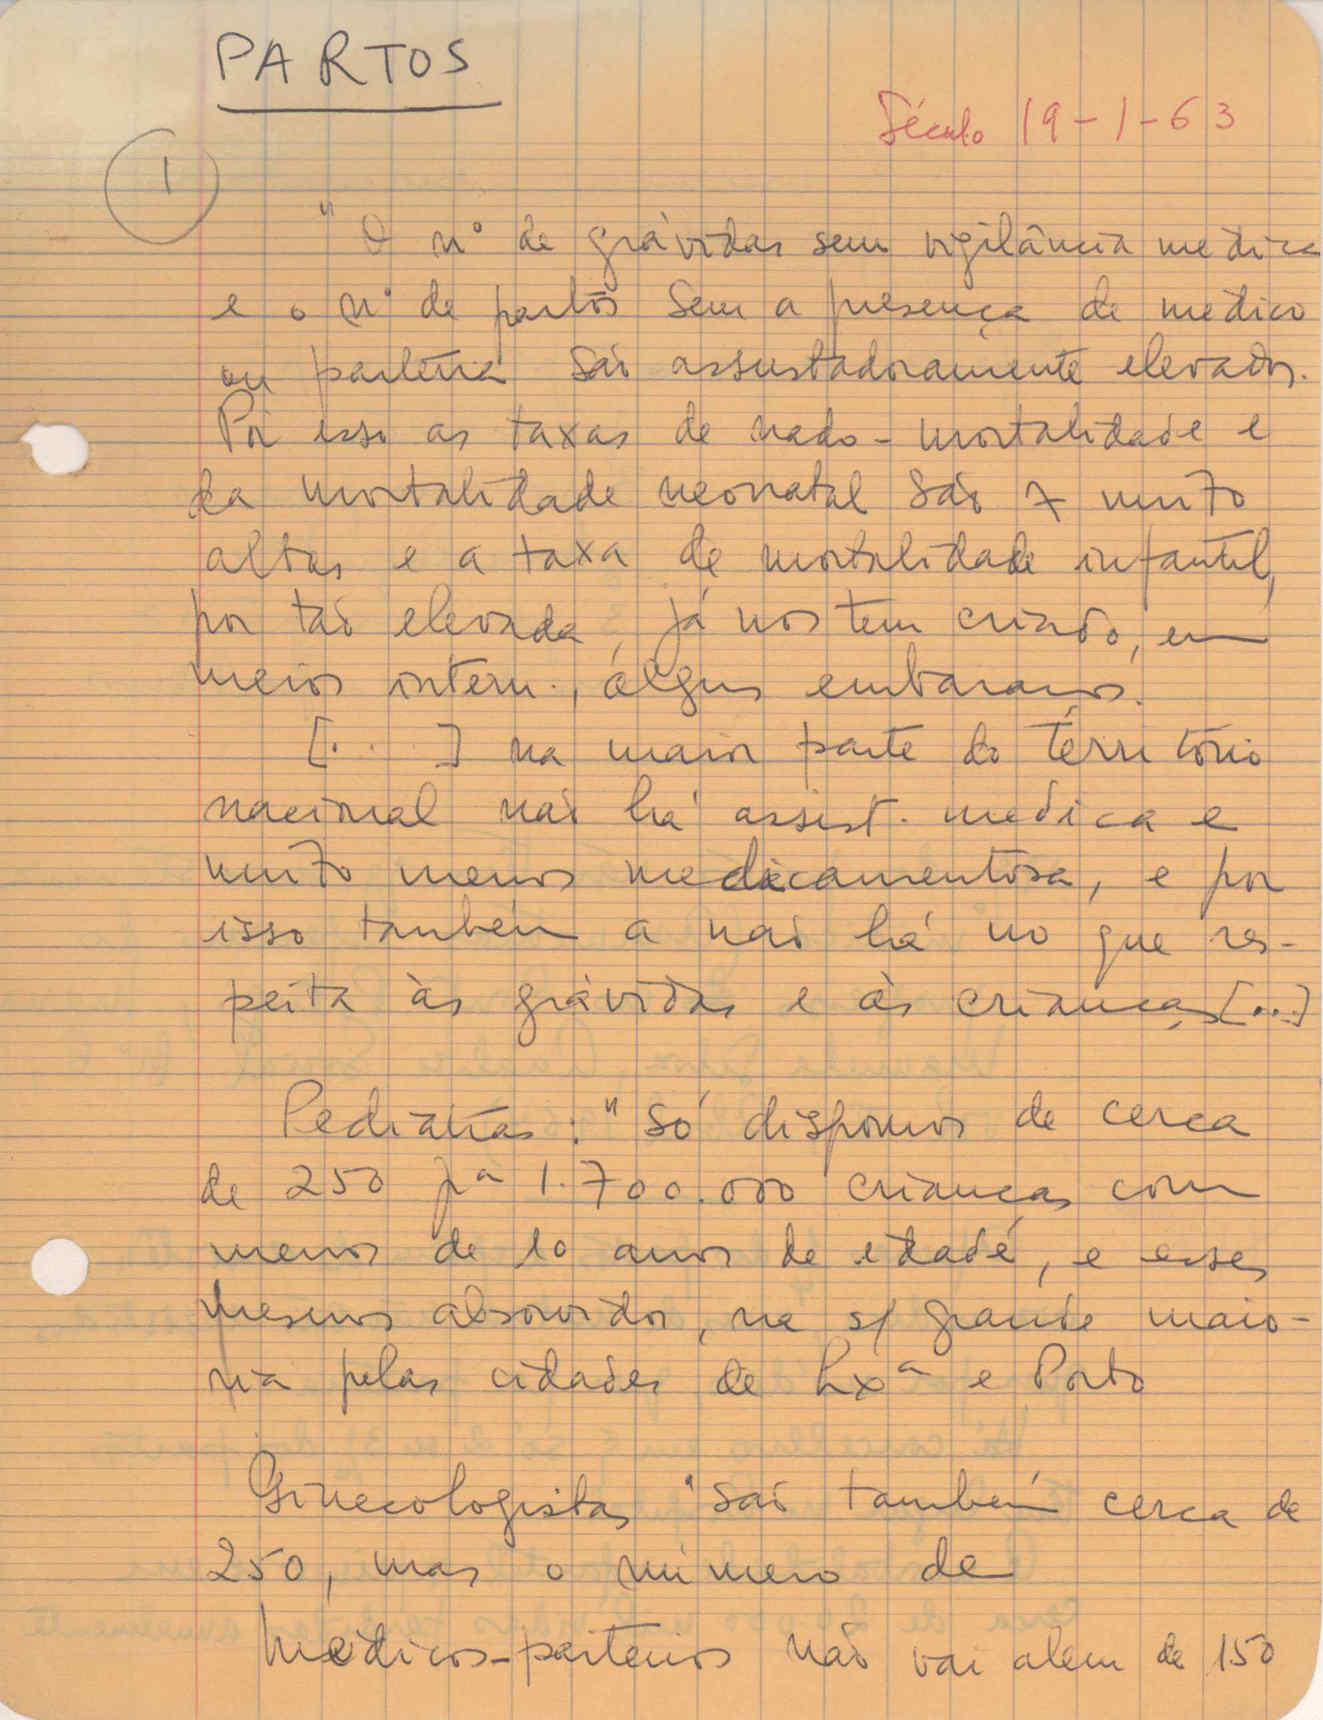 PARTOS
Século 19-1-63
1
"O nº de grávidas sem vigilância medica
e o nº de partos sem a presença de medico
ou parteira são assustadoramente elevados.
Por isso as taxas de nado-mortalidade e
da mortalidade neonatal são muito
altas e a taxa de mortalidade infantil,
por tão elevada, já nos tem criado, em
meios intern., alguns embaraços.
[...] na maior parte do território
nacional não há assist. medica e
muito menos medicamentosa, e por
isso também a não há no que res-
peita às grávidas e às crianças [...]
Pediatras: "só dispomos de cerca
de 250 pª 1.700.000 crianças com
menos de 10 anos de idade, e esses
mesmos absorvidos, na s/ grande maio-
ria pelas cidades de Lxª e Porto
Ginecologistas "são também cerca de
250, mas o número de
médicos-parteiros não vai alem de 150